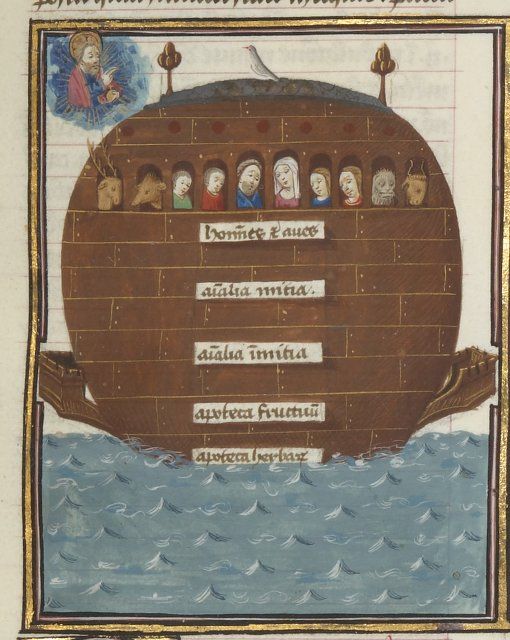 hom̅es ⁊ aues
ai̅alia mitia.
ai̅alia i̅mitia
apoteca fructuu̅
apoteca herbaꝝ